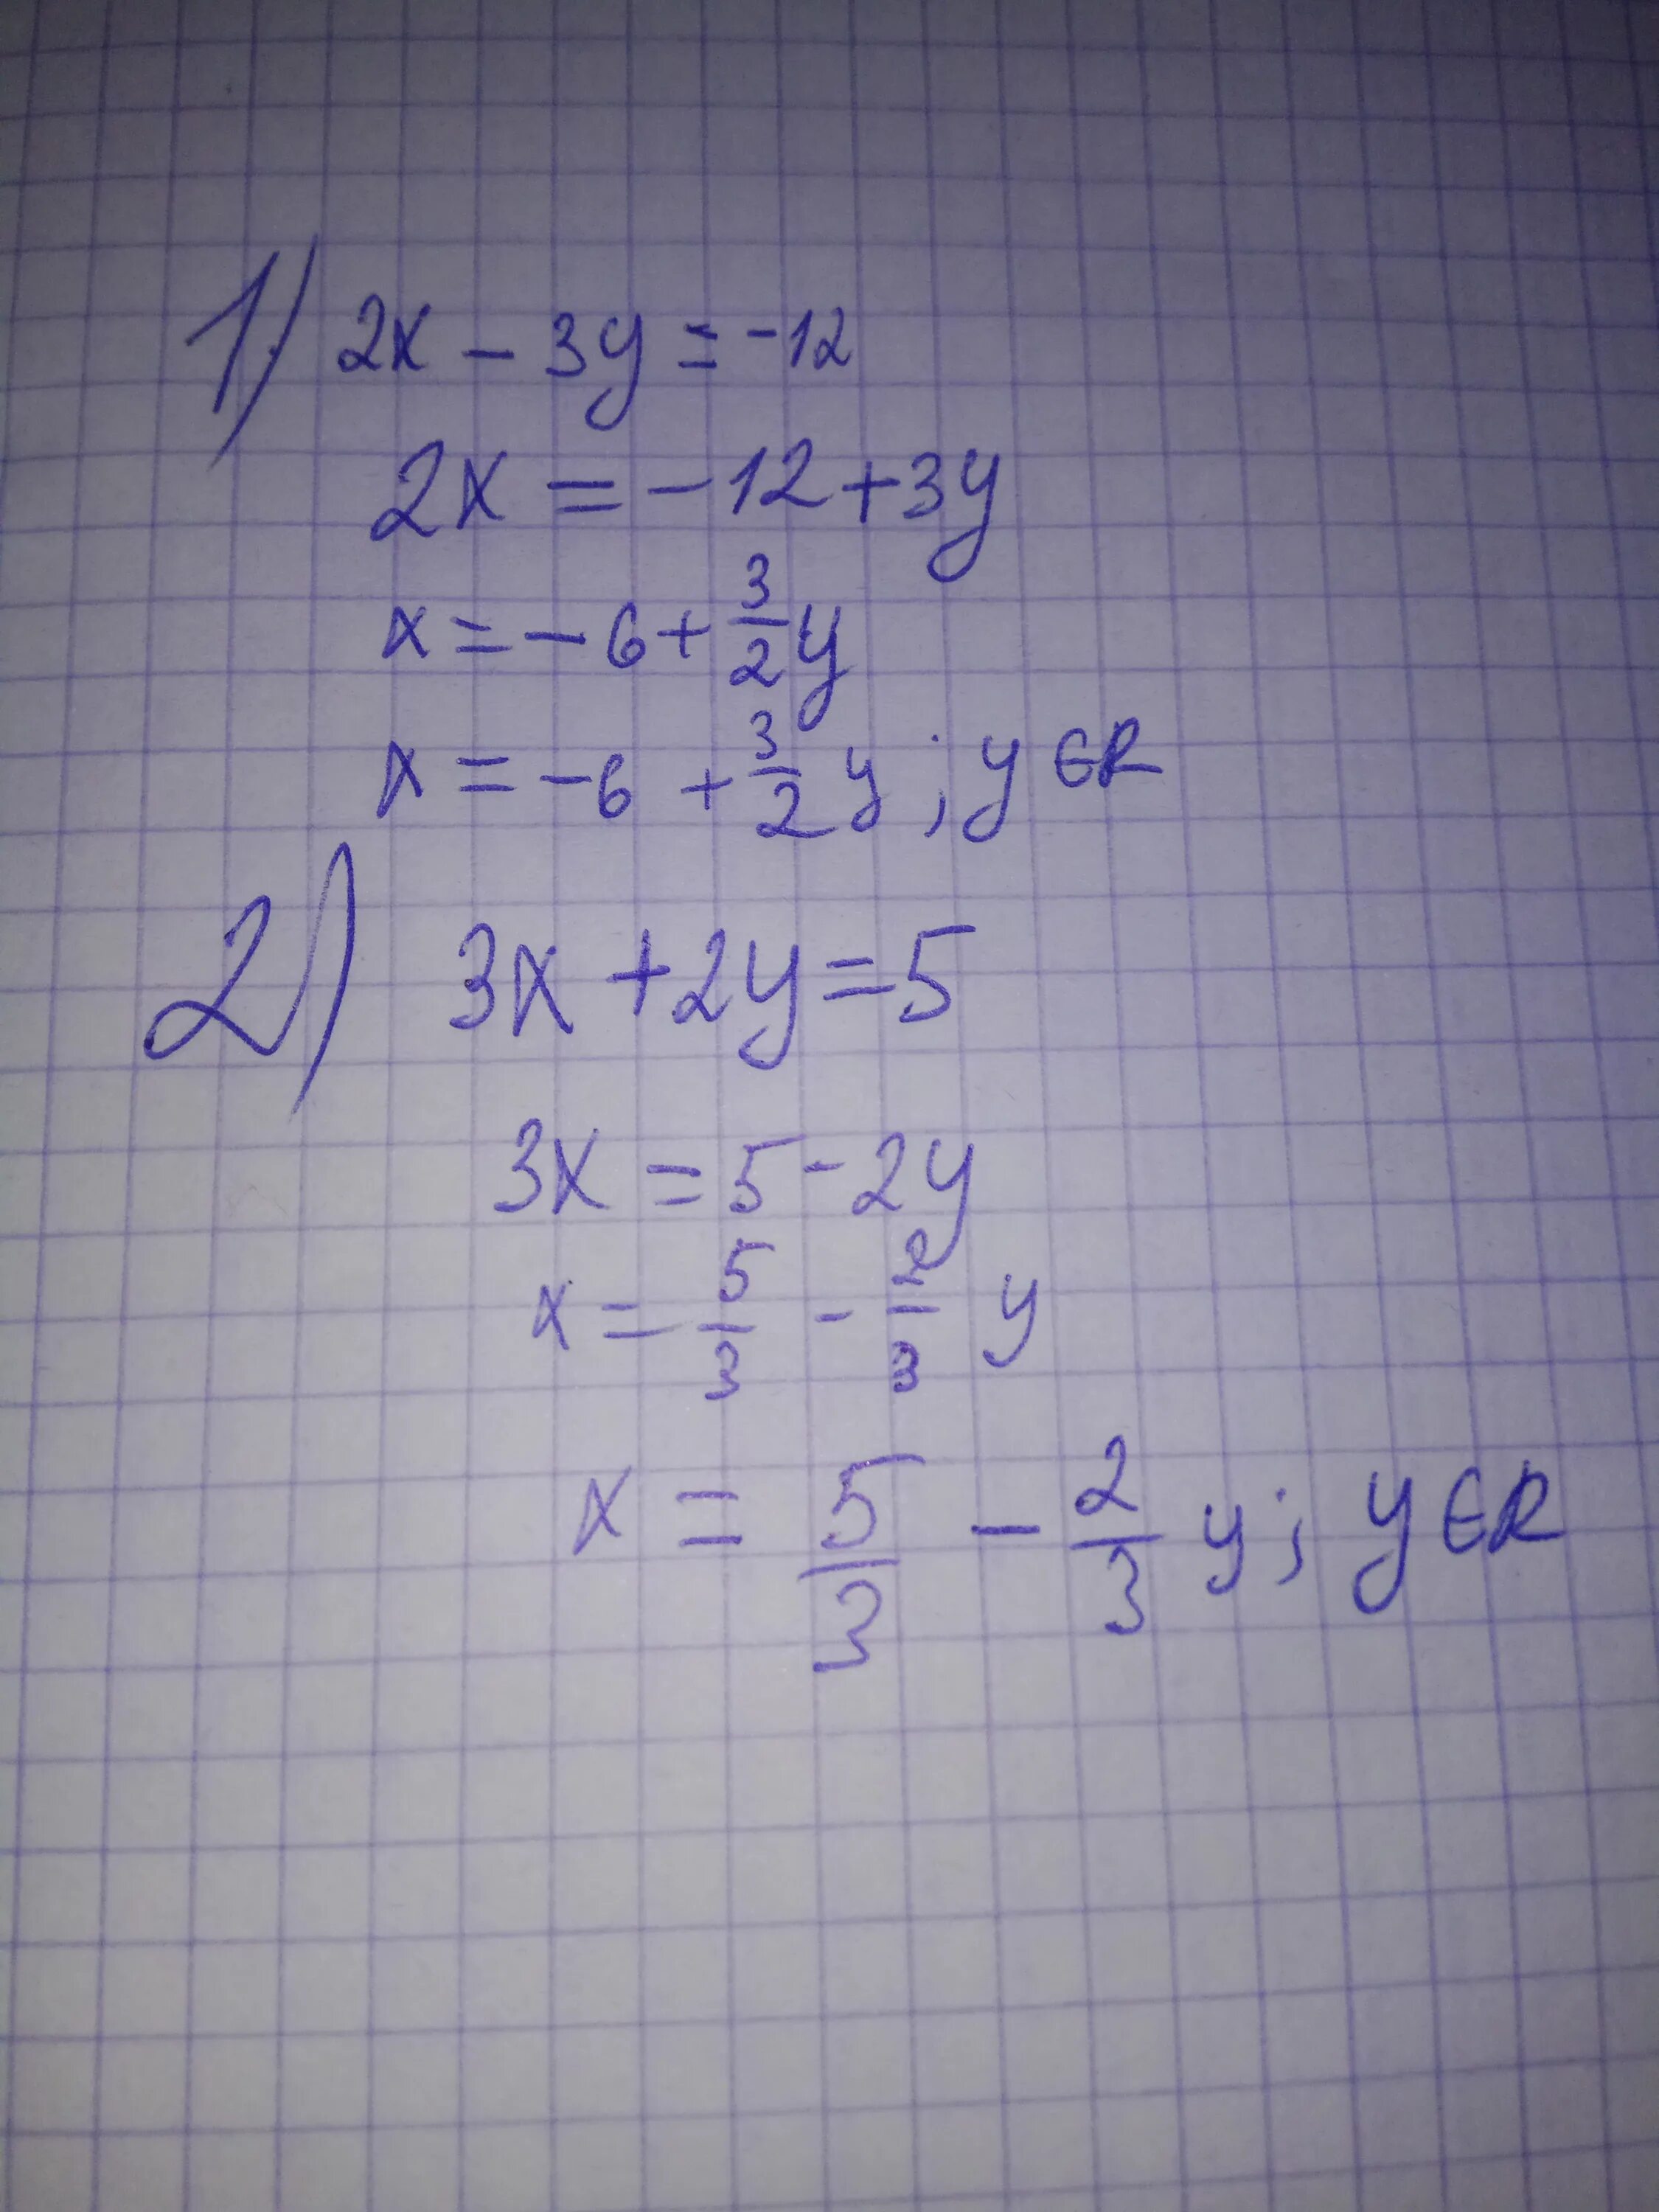 1) 2x - 3y = -12
2x = -12 + 3y
x = -6 + 3/2 y
x = -6 + 3/2 y ; y ∈ R
2) 3x + 2y = 5
3x = 5 - 2y
x = 5/3 - 2/3 y
x = 5/3 - 2/3 y ; y ∈ R